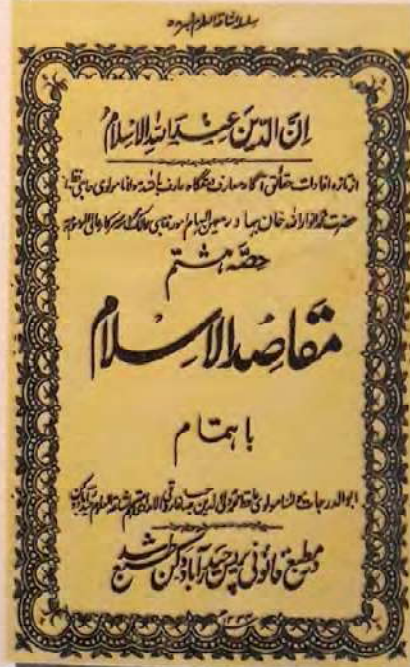 سلسلہ اشاعۃ العلوم نمبر
اِنَّ الدِّینَ عِنْدَ اللّٰہِ الْاِسْلَامُ
از تازہ افادات حقائق آگاہ معارف دستگاہ عارف باللہ مولانا مولوی حاجی حافظ
حضرت محمد انوار اللہ خان بہادر معین المہام امور مذہبی سرکار عالی
حصہ ہشتم
مقاصد الاسلام
باہتمام
ابوالدرجات مولانا مولوی اشاعۃ العلوم
در مطبع قانونی پریس حیدرآباد دکن طبع شد